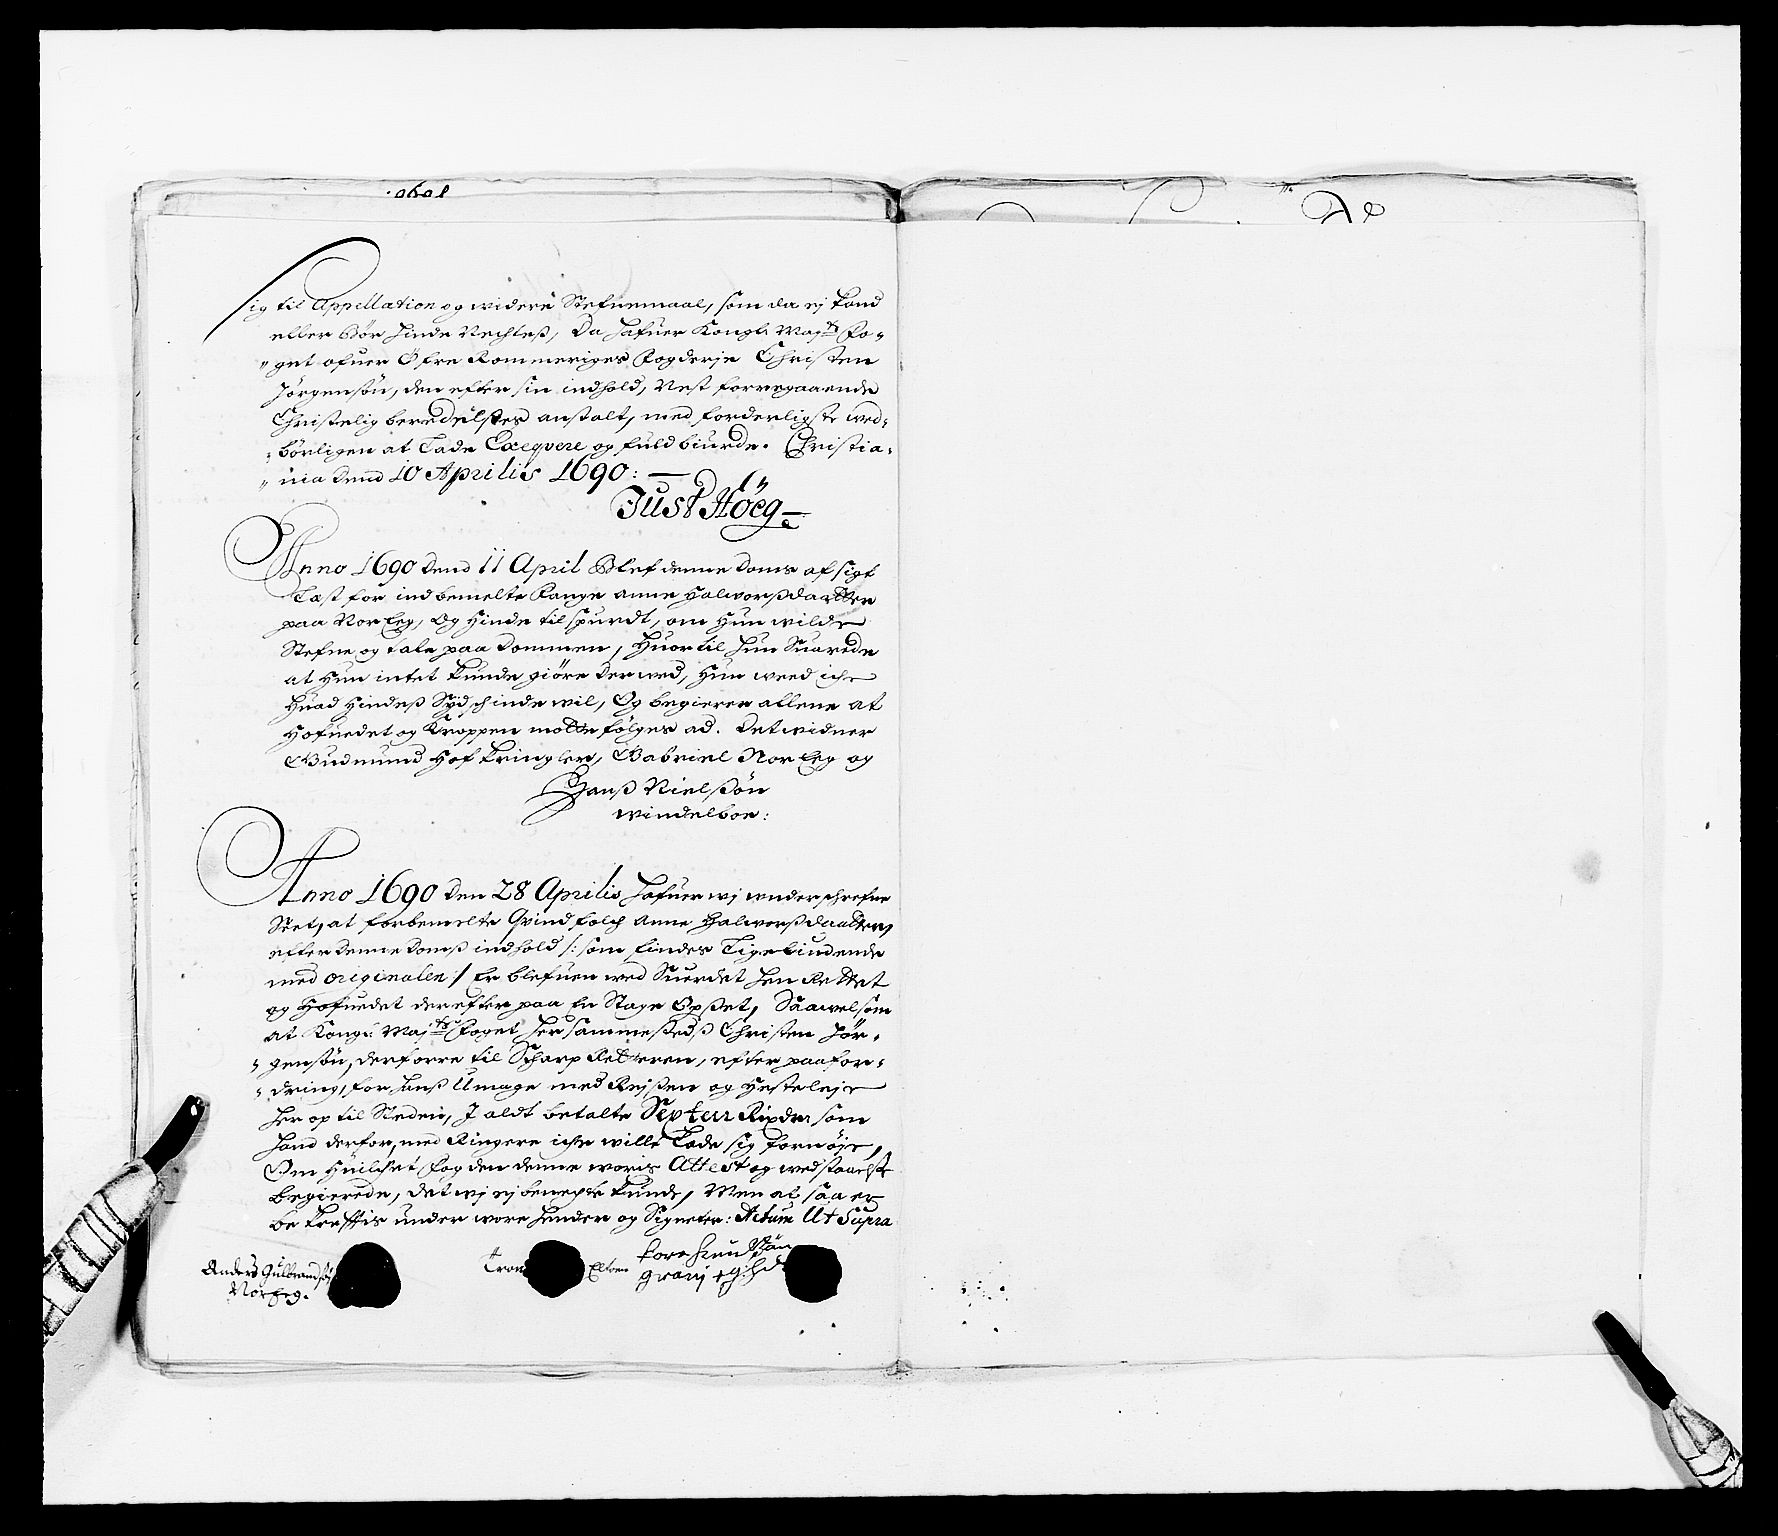 sig til Appellation og widere Stefnemaal, som da ej kand
eller Bør hinde Nechtes, Da hafuer Kongl: Maj:ts Fo-
"get ofuer Øfre Rommeriges Fogderje Christen
Jörgensön, den efter sin indhold, Nest forregaaende
Christelig beredelses anstalt, med forderligste wed-
"börligen at Lade Exeqvere og fuldbiurde. Christia-
"nia Dend 10 Aprilis 1690:
Just Höeg
Anno 1690 Dend 11 April Blef denne Doms afsigt
Læst for indbemelte Fange Anne Halworsdaatter
paa Nor Eeg, Og Hinde tilspurdt, om Hun wilde
Stefne og tale paa Dommen, Huortil Hun Suarede
at Hun intet kunde giöre derwed, Hun weed iche
Huad Hindes hinde wil, Og begierer allene at
Hofuedet og Kroppen motte fölges ad. Det widner
Gudmund Hof Kringler, Gabriel Nor Eeg og
Hans Nielsön
Windelboe:
Anno 1690 den 28 Aprilis Hafuer wj underschrefne
Seet, at forbemelte Qvindfolch Anne Halworsdaatter,
efter denne Doms indhold /: som findes Ligeliudende
med originalen :/ Er blefuen wed Suerdet Hen Rettet
og Hofuedet derefter paa En Stage Opset, Saawelsom
at Kongl: Maj:ts Foget Hersammesteds Christen Jör-
"gensön, derforre til Scharp Retteren, efter paafor-
"dring, for Hans Umage med Rejsen og Hesteleje
Her op til Steden, I aldt betalte Rixdr som
Hand derfor, med Ringere iche wille Lade sig fornöje,
Om Huilchet Fogden denne woris Attest og wedstaaelse
begierede, det wj ej benegte kunde, Men at saa er
bekreftis under wore Hender og Signeter: Actum Ut Supra
Anders Gulbrandsön
Nor Eeg.
Tron Eltoen